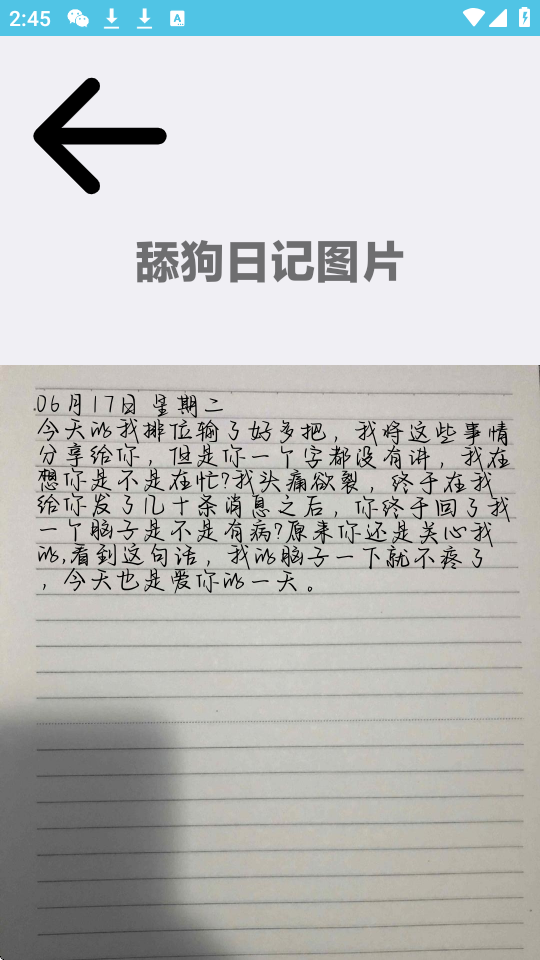 2:45
A
舔狗日记图片
.06月17日 星期二
今天的我排位输了好多把，我将这些事情
分享给你，但是你一个字都没有讲，我在
想你是不是在忙?我头痛欲裂，终于在我
给你发了几十条消息之后，你终于回了我
一个脑子是不是有病?原来你还是关心我
的,看到这句话，我的脑子一下就不疼了
，今天也是爱你的一天。